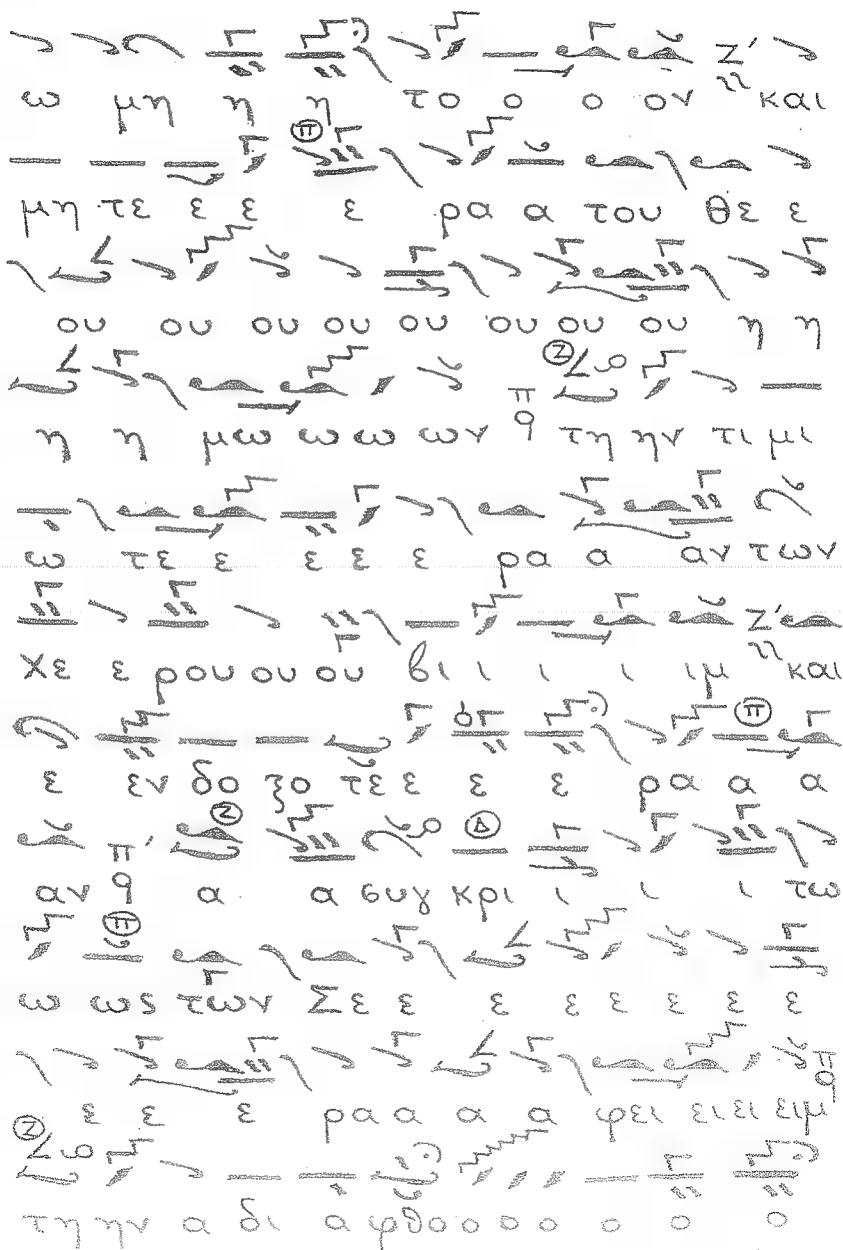 ω μη η η το ο ο ον Ζ΄ και
μη τε ε ε ε ρα α του θε ε
ου ου ου ου ου ου ου ου η η
η η μω ω ω ων π τη ην τι μι
ω τε ε ε ε ε ρα α αν των
χε ε ρου ου ου βι ι ι ι ιμ Ζ΄ και
ε εν δο ξο τε ε ε ε ρα α α
αν π΄ α α συγ κρι ι ι ι τω
ω ως των Σε ε ε ε ε ε ε ε
ε ε ε ρα α α α φει ει ει ειμ π
τη ην α δι α φθο ο ο ο ο ο ο